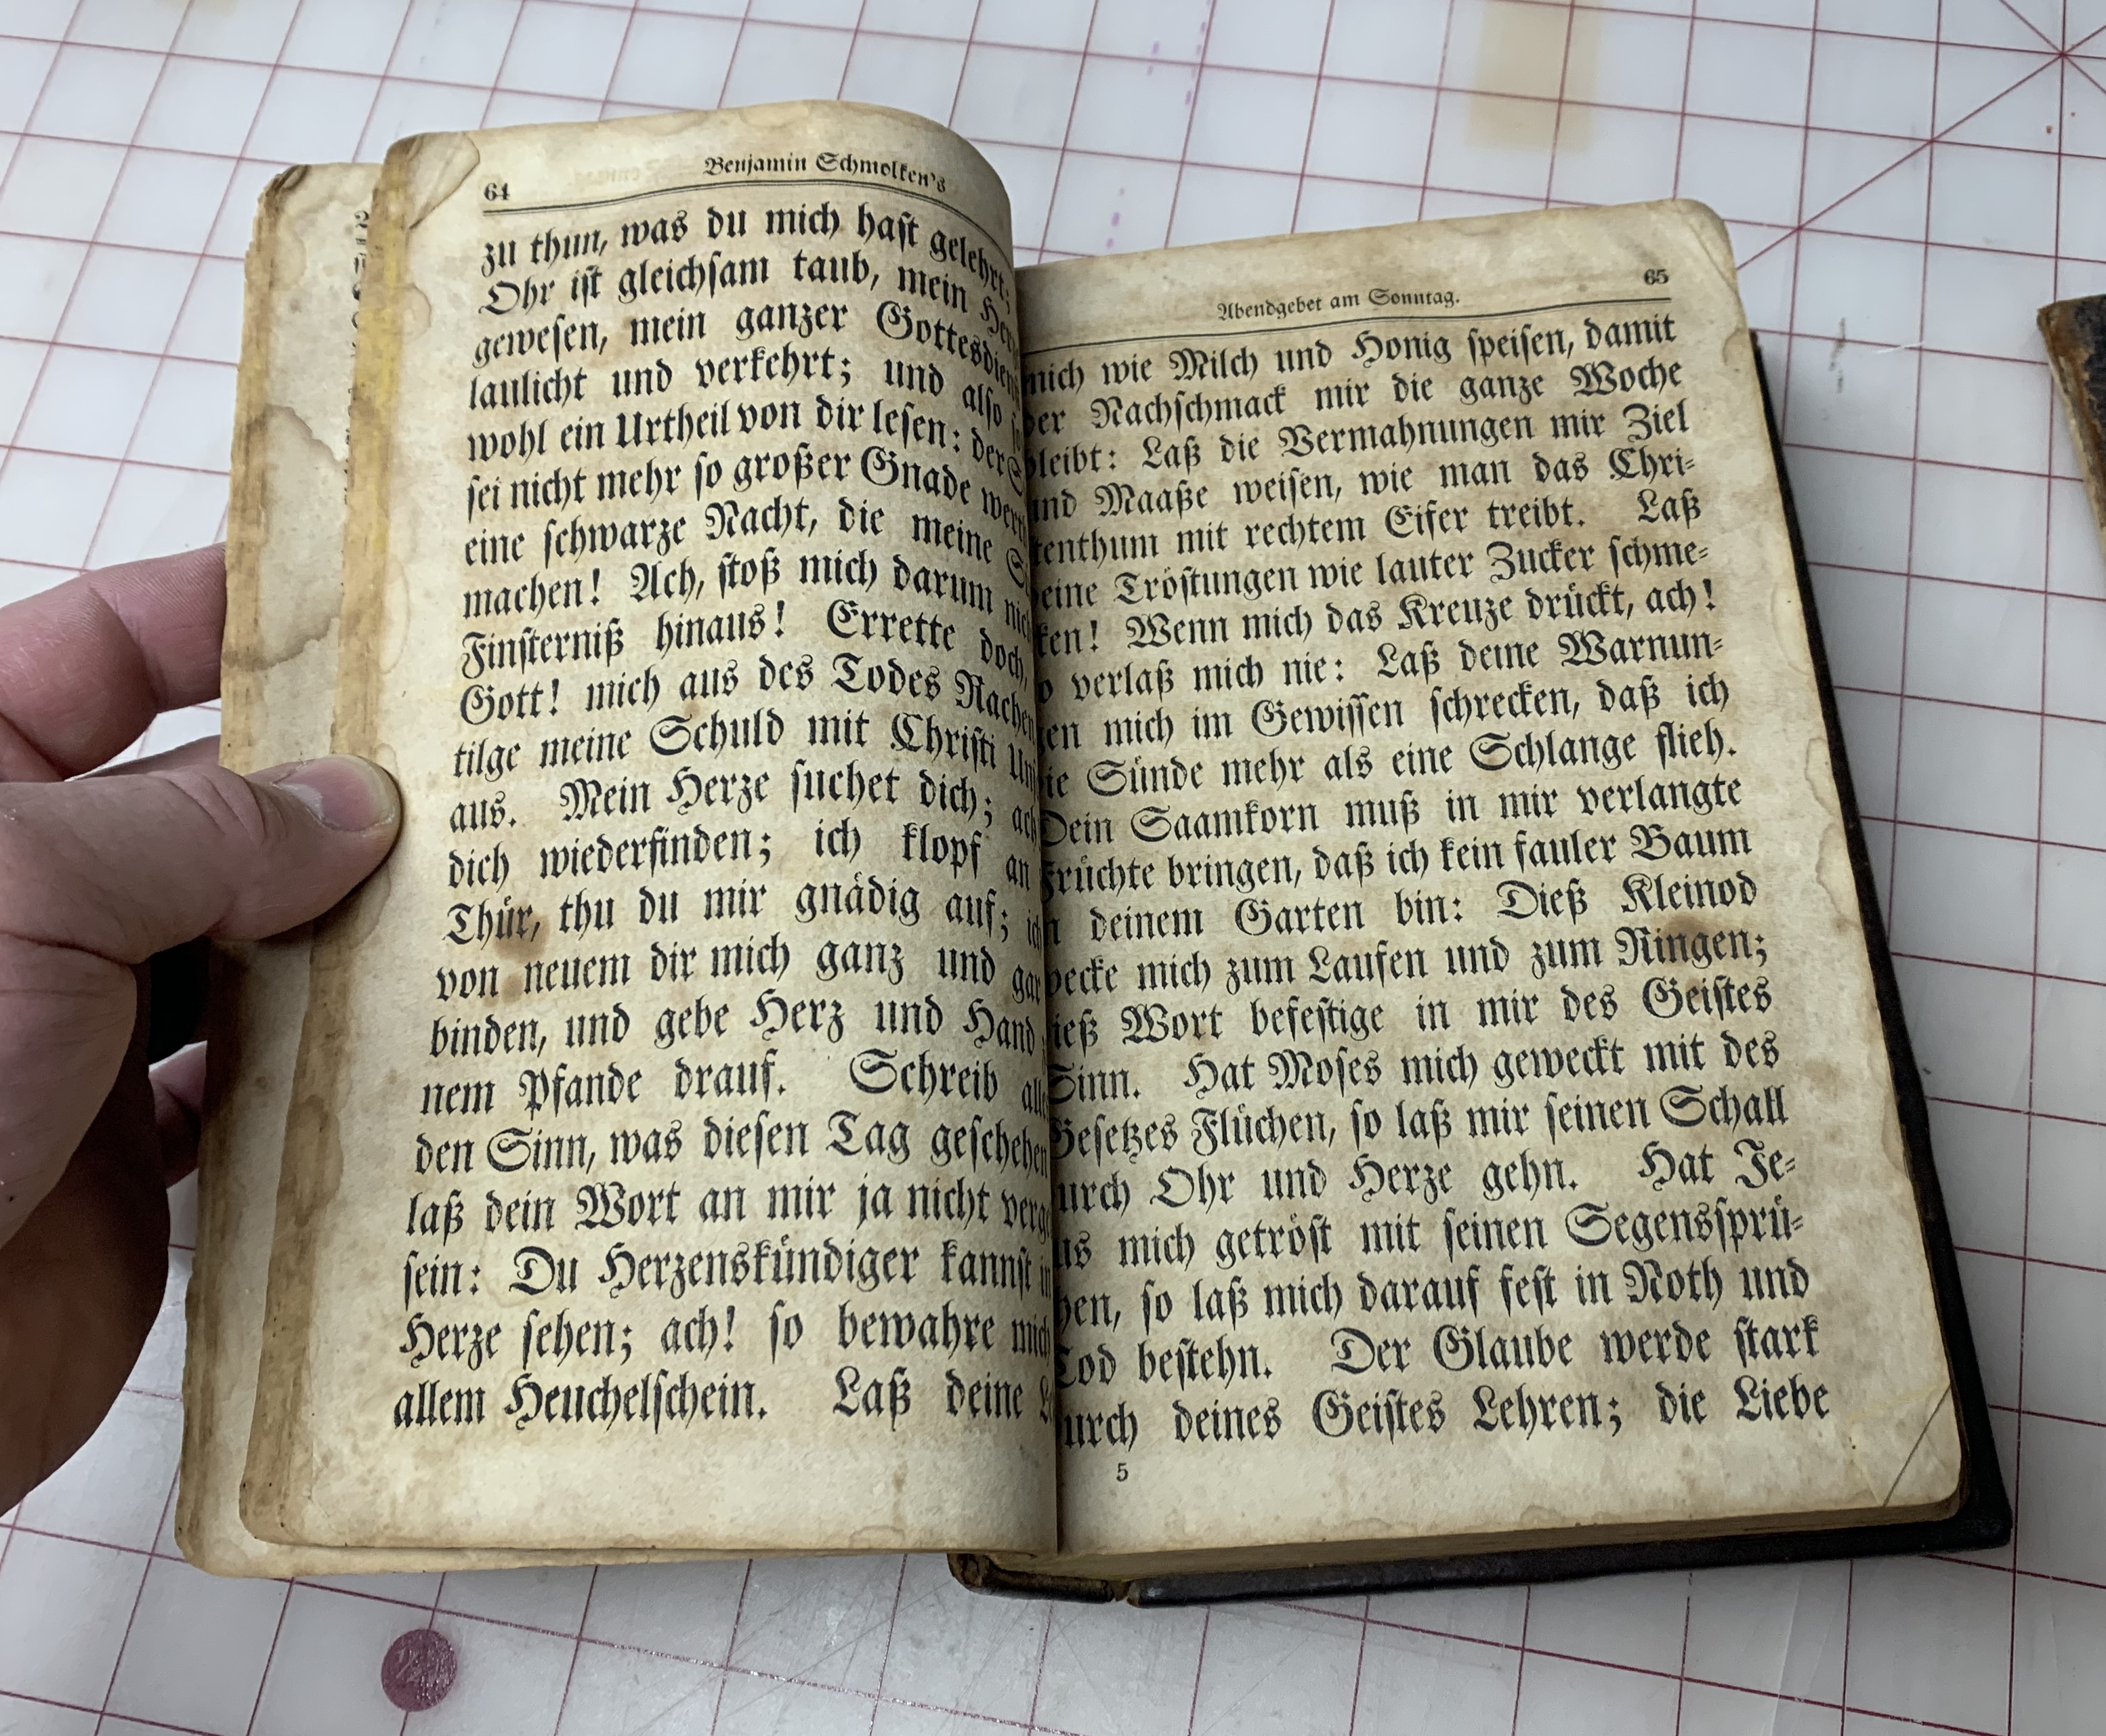 64
Benjamin Schmolken's
zu thun, was du mich hast gelehrt;
Ohr ist gleichsam taub, mein
gewesen, mein ganzer
laulicht und verkehrt; und also
wohl ein Urtheil von dir lesen: der
sei nicht mehr so großer Gnade
eine schwarze Nacht, die meine
machen! Ach, stoß mich darum
Finsterniß hinaus! Errette doch,
Gott! mich aus des Todes Rachen
tilge meine Schuld mit Christi
aus. Mein Herze suchet dich; ach
dich wiederfinden; ich klopf an
Thür, thu du mir gnädig auf;
von neuem dir mich ganz und gar
binden, und gebe Herz und Hand
nem Pfande drauf. Schreib
den Sinn, was diesen Tag geschehen
laß dein Wort an mir ja nicht
sein: Du Herzenskündiger kannst
Herze sehen; ach! so bewahre mich
allem Heuchelschein. Laß deine
Abendgebet am Sonntag.
65
mich wie Milch und Honig speisen, damit
der Nachschmack mir die ganze Woche
bleibt: Laß die Vermahnungen mir Ziel
und Maaße weisen, wie man das Chri-
tenthum mit rechtem Eifer treibt. Laß
eine Tröstungen wie lauter Zucker schme-
ken! Wenn mich das Kreuze drückt, ach!
o verlaß mich nie: Laß deine Warnun-
en mich im Gewissen schrecken, daß ich
ie Sünde mehr als eine Schlange flieh.
Dein Saamkorn muß in mir verlangte
Früchte bringen, daß ich kein fauler Baum
n deinem Garten bin: Dieß Kleinod
wecke mich zum Laufen und zum Ringen;
ieß Wort befestige in mir des Geistes
Sinn. Hat Moses mich geweckt mit des
Gesetzes Flüchen, so laß mir seinen Schall
urch Ohr und Herze gehn. Hat Je-
us mich getröst mit seinen Segenssprü-
hen, so laß mich darauf fest in Noth und
Tod bestehn. Der Glaube werde stark
urch deines Geistes Lehren; die Liebe
5